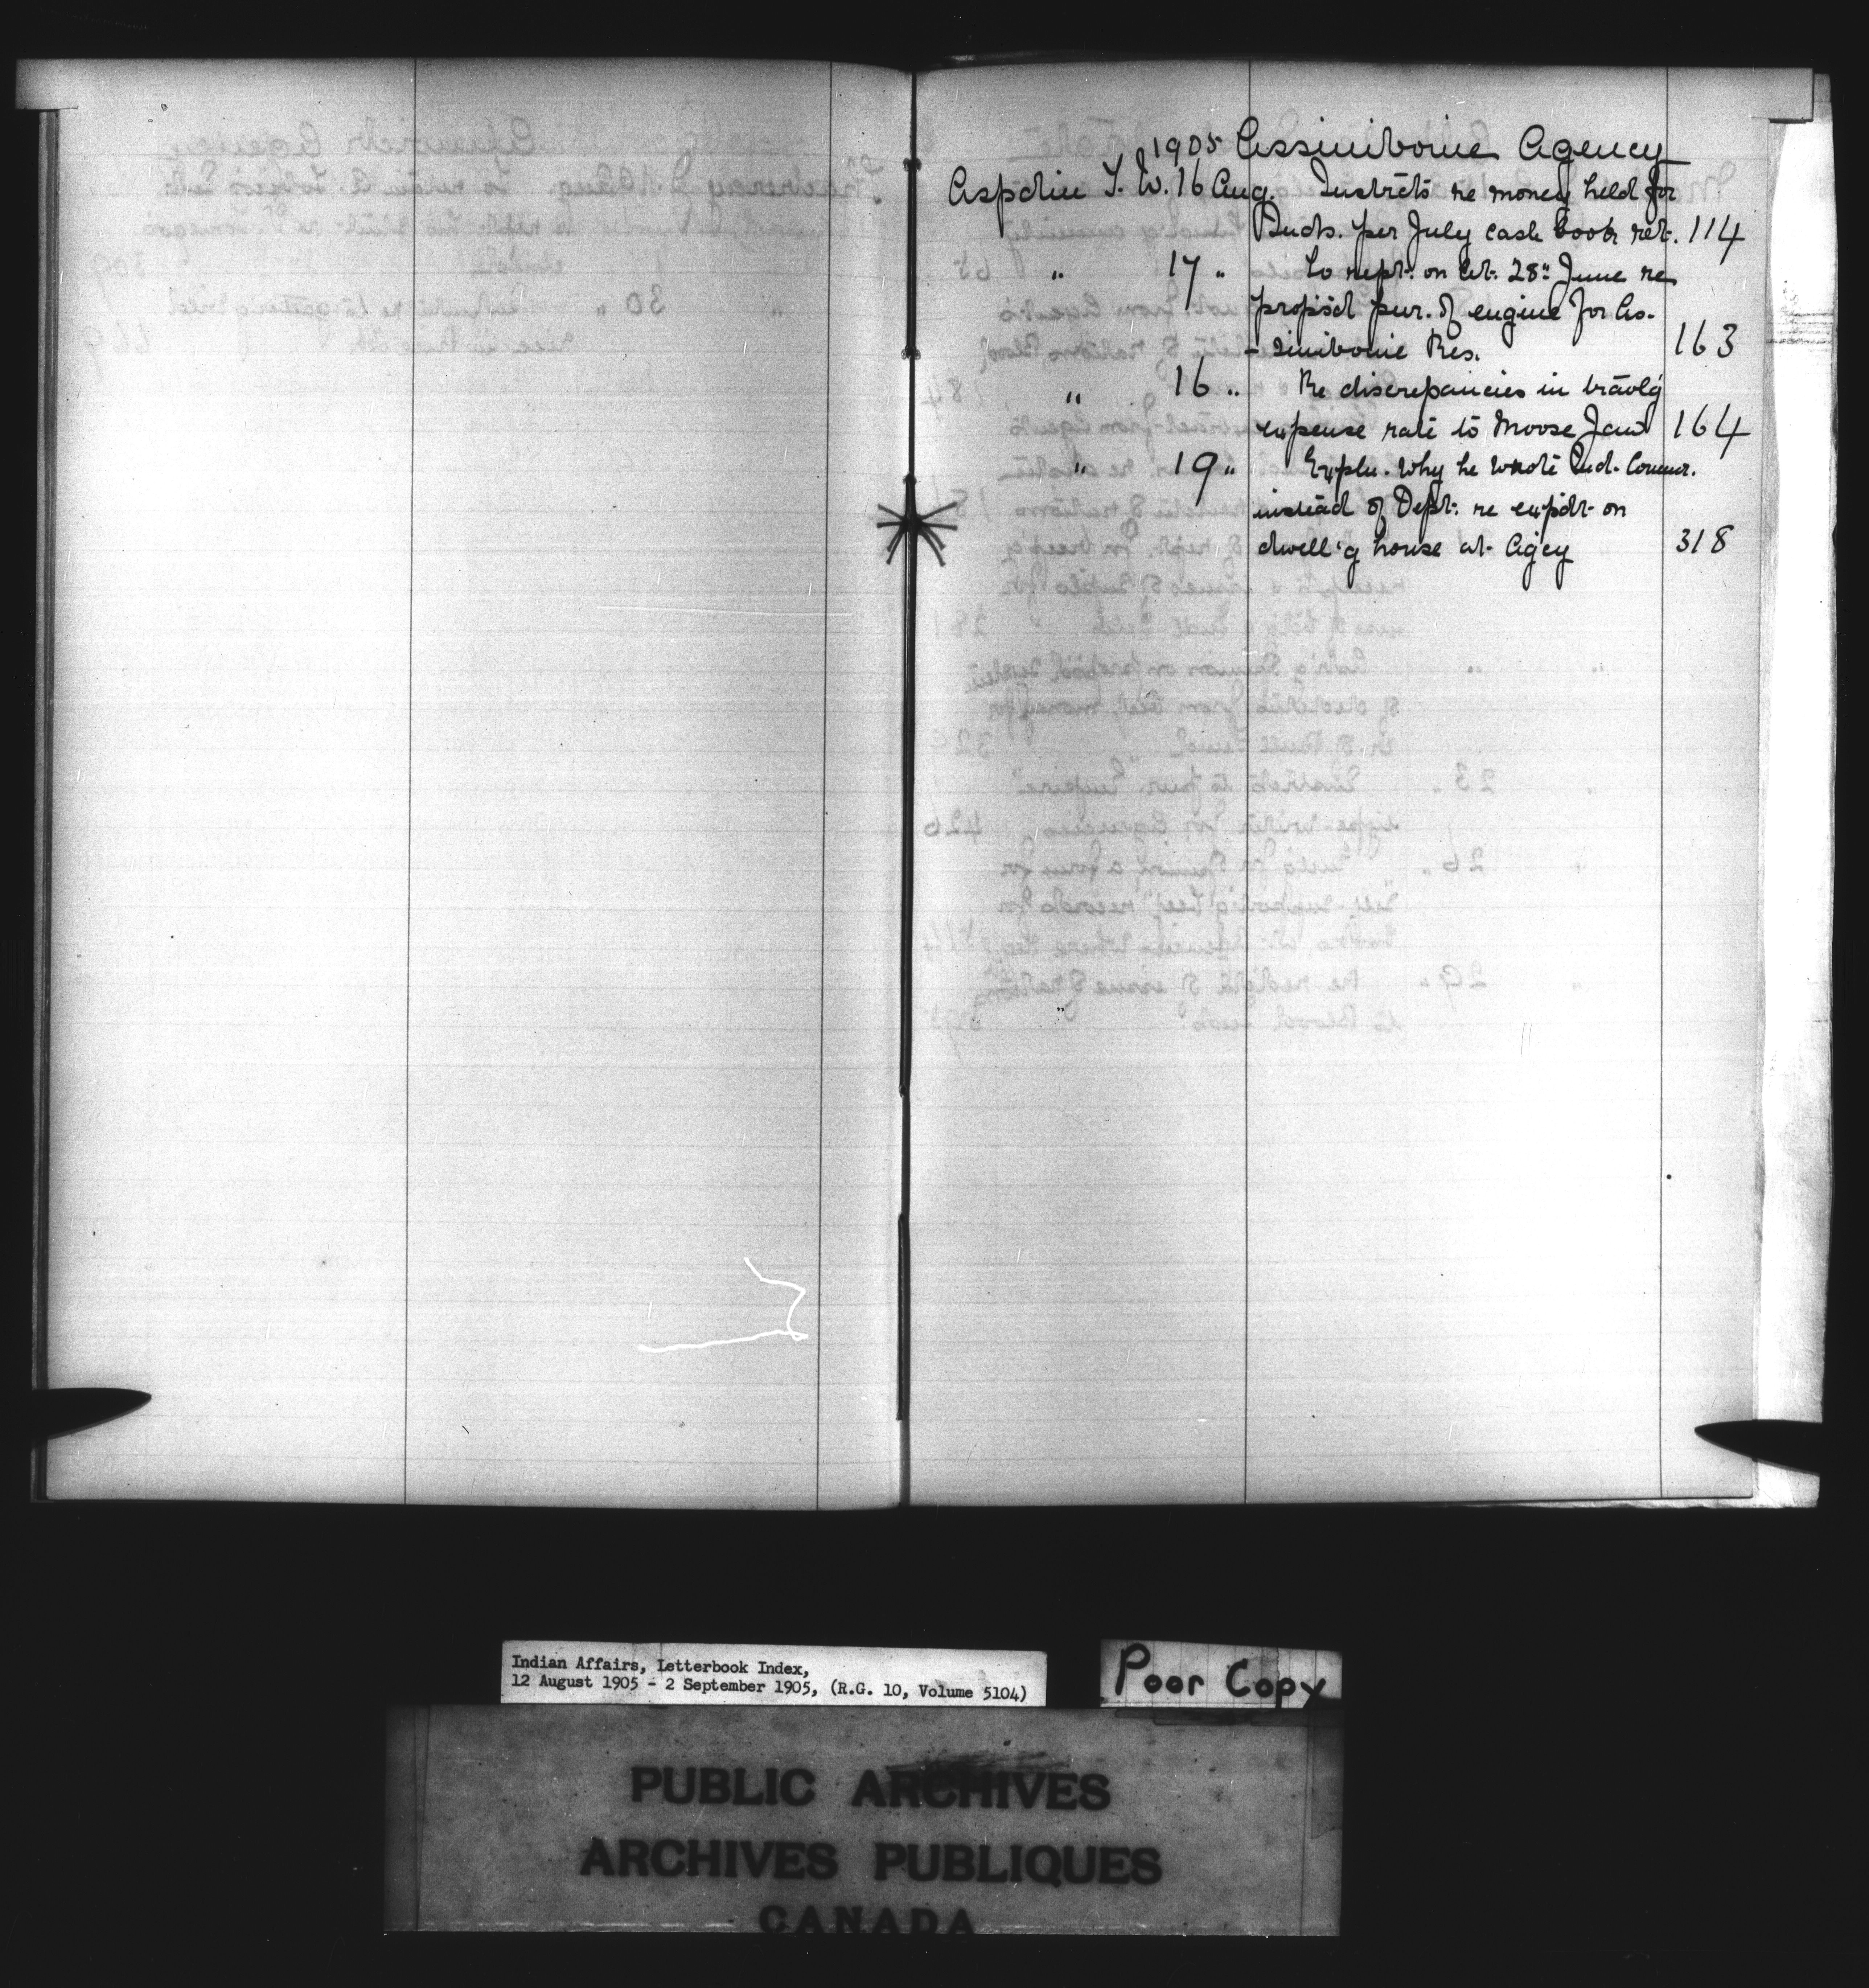 1905 Assiniboine Agency
Aspdin T. W. 16 Aug. Instrcts re money held for
Inds. per July cash book ret. 114
" 17 " To rept. on let. 28" June re
propos'd pur. of engine for As-
-siniboine Res. 163
" 16 " Re discrepancies in travlg
expense rate to Moose Jaw 164
" 19 " Expln. why he wrote Ind. Commr.
instead of Dept. re expdt. on
dwell'g house at Agcy 318
Indian Affairs, Letterbook Index,
12 August 1905 - 2 September 1905, (R.G. 10, Volume 5104)
Poor Copy
PUBLIC ARCHIVES
ARCHIVES PUBLIQUES
CANADA